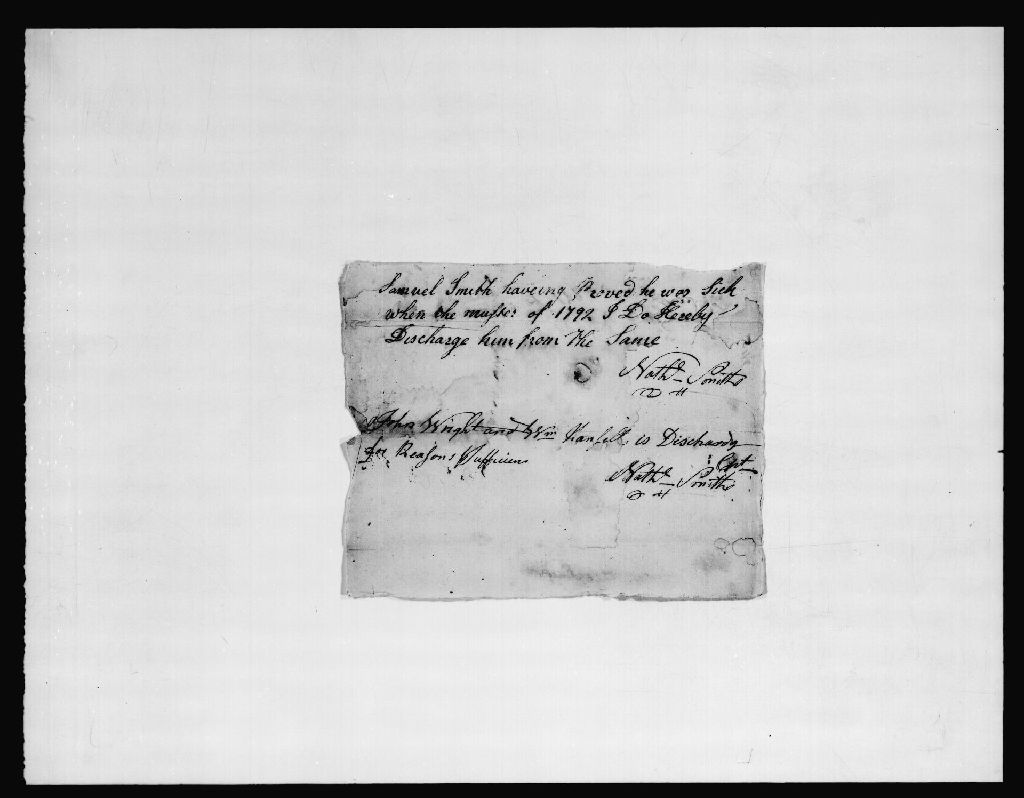 Samuel Smith haveing Proved he was Sick
when the muster of 1792 I Do Hereby
Discharge him from the Same
Nathl Smith
John Wright and Wm is Dischardg
for Reasons Sufficien
Capt
Nathl Smith